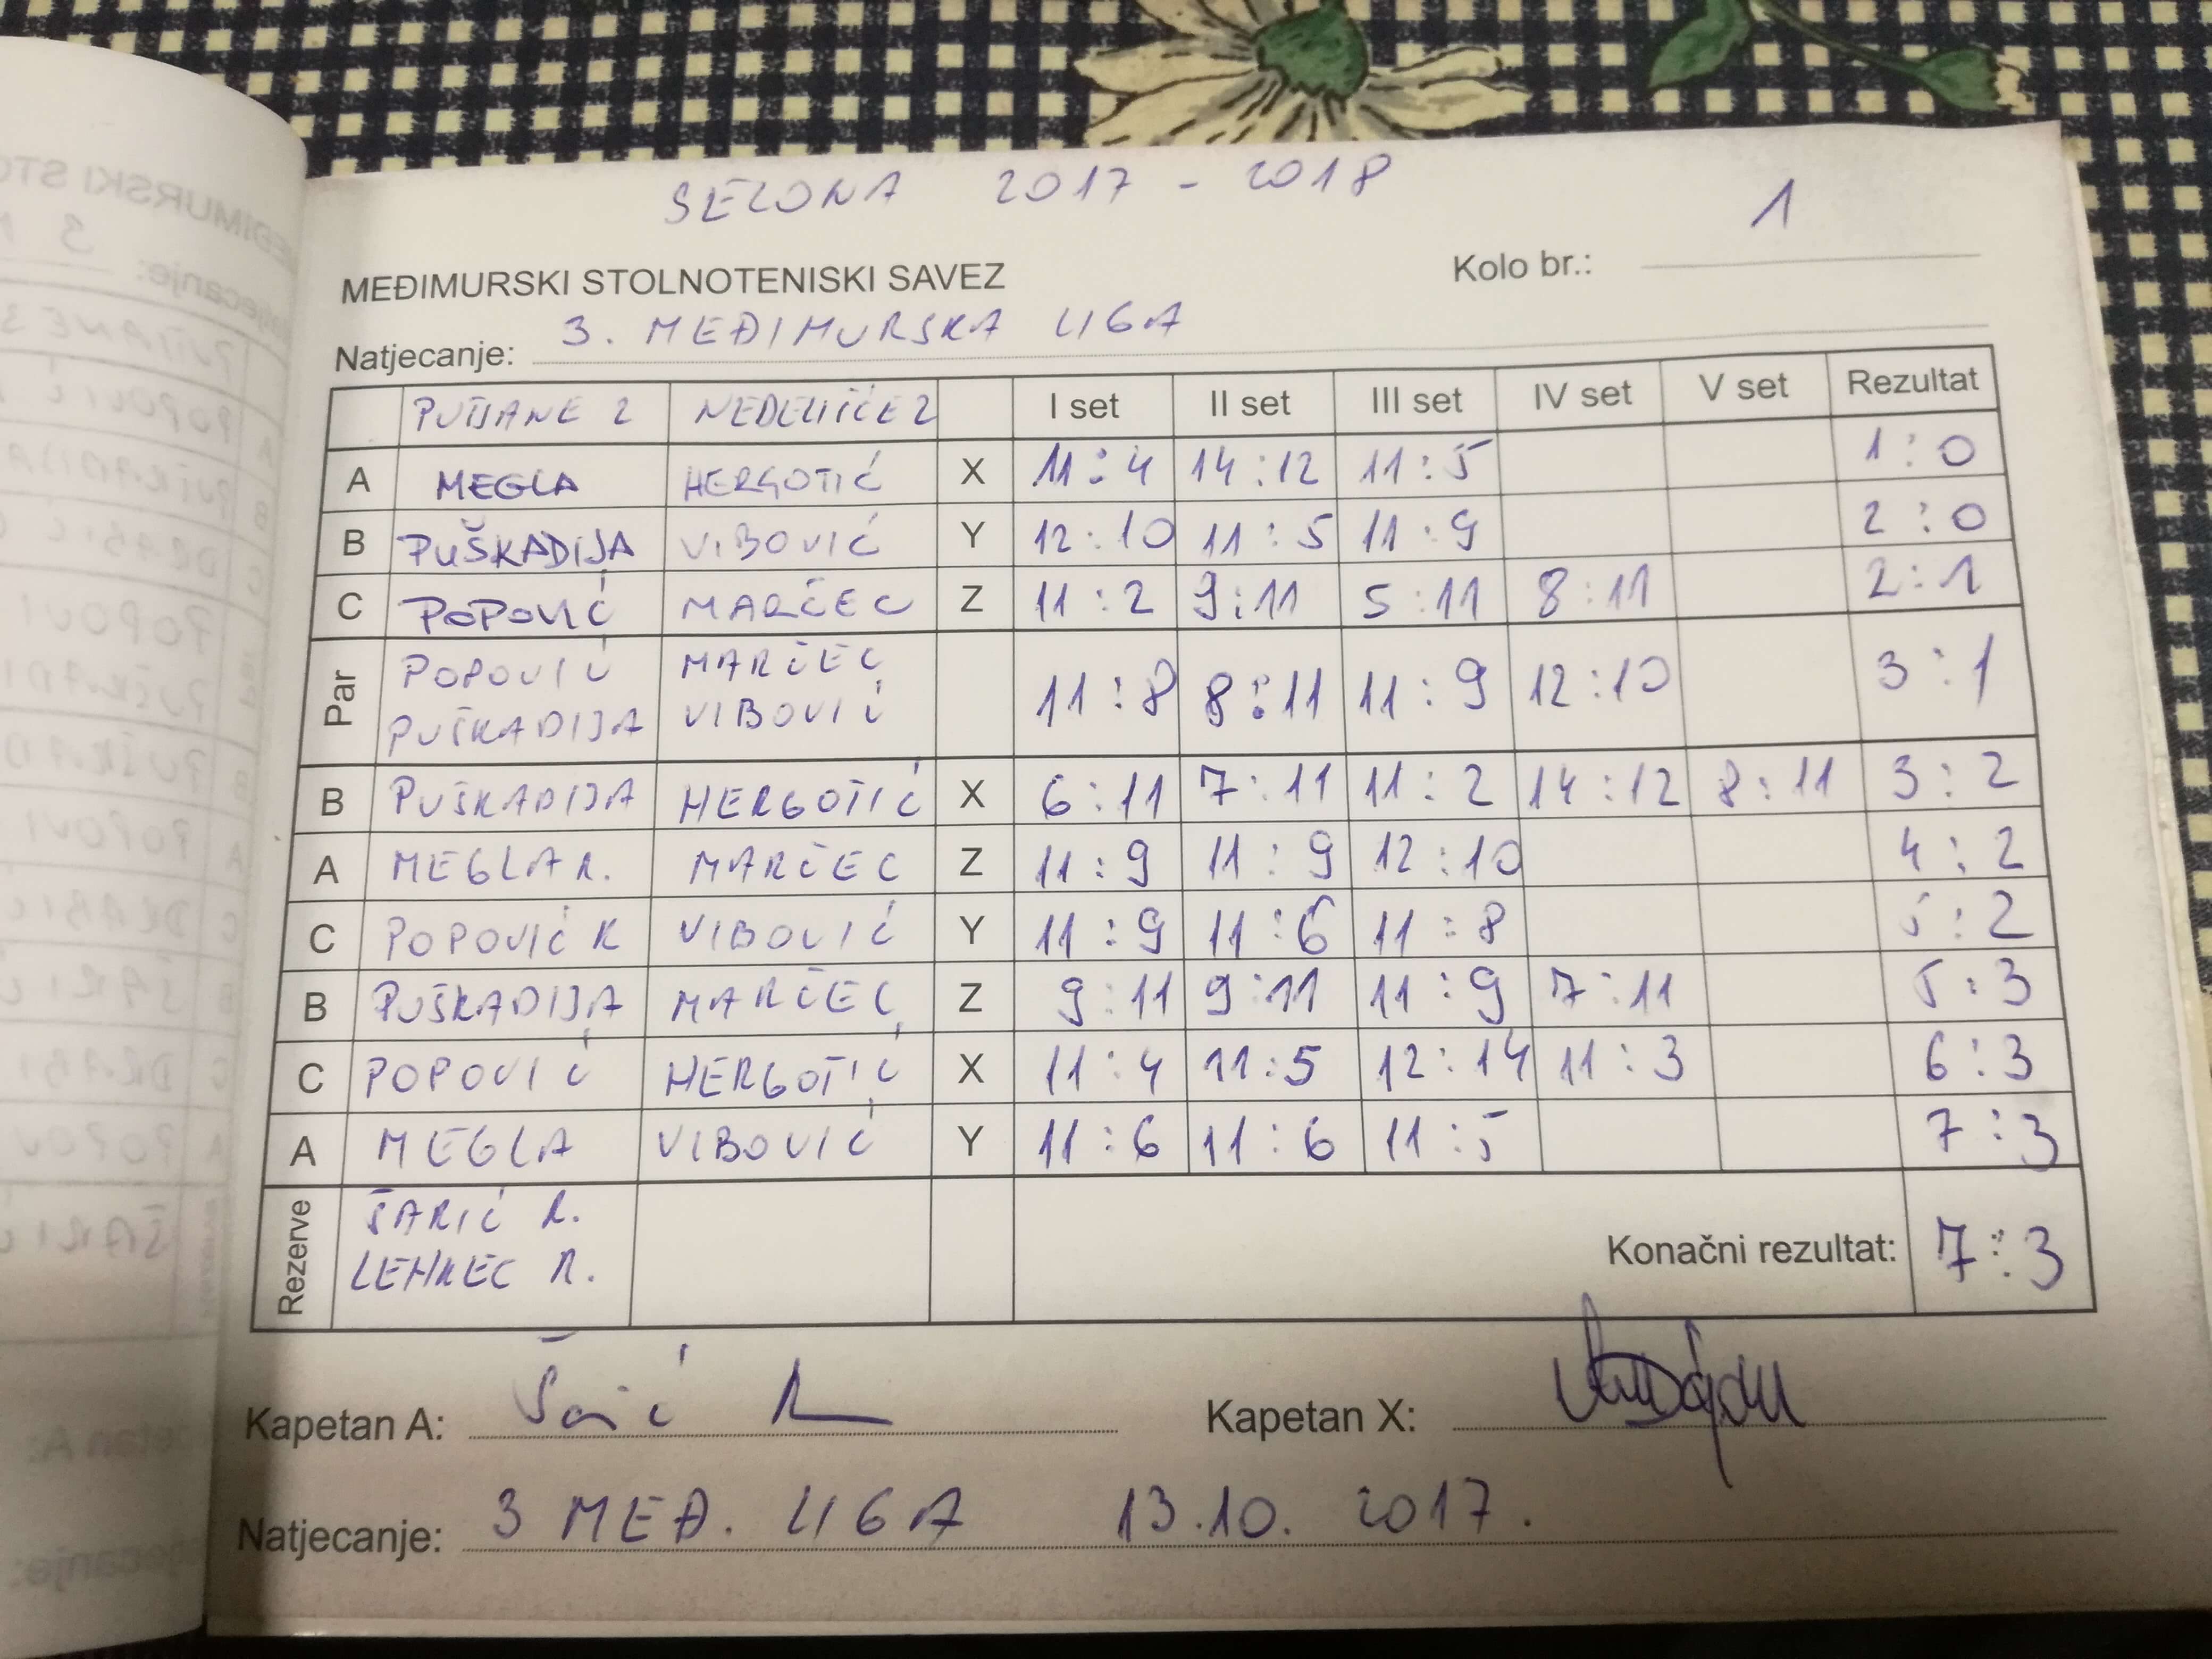 SEZONA 2017 - 2018
1
MEĐIMURSKI STOLNOTENISKI SAVEZ Kolo br.:
Natjecanje: 3. MEĐIMURSKA LIGA
PUŠĆANE 2 NEDELIŠĆE 2 I set II set III set IV set V set Rezultat
A MEGLA HERGOTIĆ X 11:4 14:12 11:5 1:0
B PUŠKADIJA VIBOVIĆ Y 12:10 11:5 11:9 2:0
C POPOVIĆ MARČEC Z 11:2 9:11 5:11 8:11 2:1
Par POPOVIĆ MARČEC 11:8 8:11 11:9 12:10 3:1
PUŠKADIJA VIBOVIĆ
B PUŠKADIJA HERGOTIĆ X 6:11 7:11 11:2 14:12 8:11 3:2
A MEGLA R. MARČEC Z 11:9 11:9 12:10 4:2
C POPOVIĆ K VIBOVIĆ Y 11:9 11:6 11:8 5:2
B PUŠKADIJA MARČEC Z 9:11 9:11 11:9 7:11 5:3
C POPOVIĆ HERGOTIĆ X 11:4 11:5 12:14 11:3 6:3
A MEGLA VIBOVIĆ Y 11:6 11:6 11:5 7:3
Rezerve ŠARIĆ R. Konačni rezultat: 7:3
LEHKEC R.
Kapetan A: Šarić R Kapetan X:
Natjecanje: 3 MEĐ. LIGA 13.10. 2017.